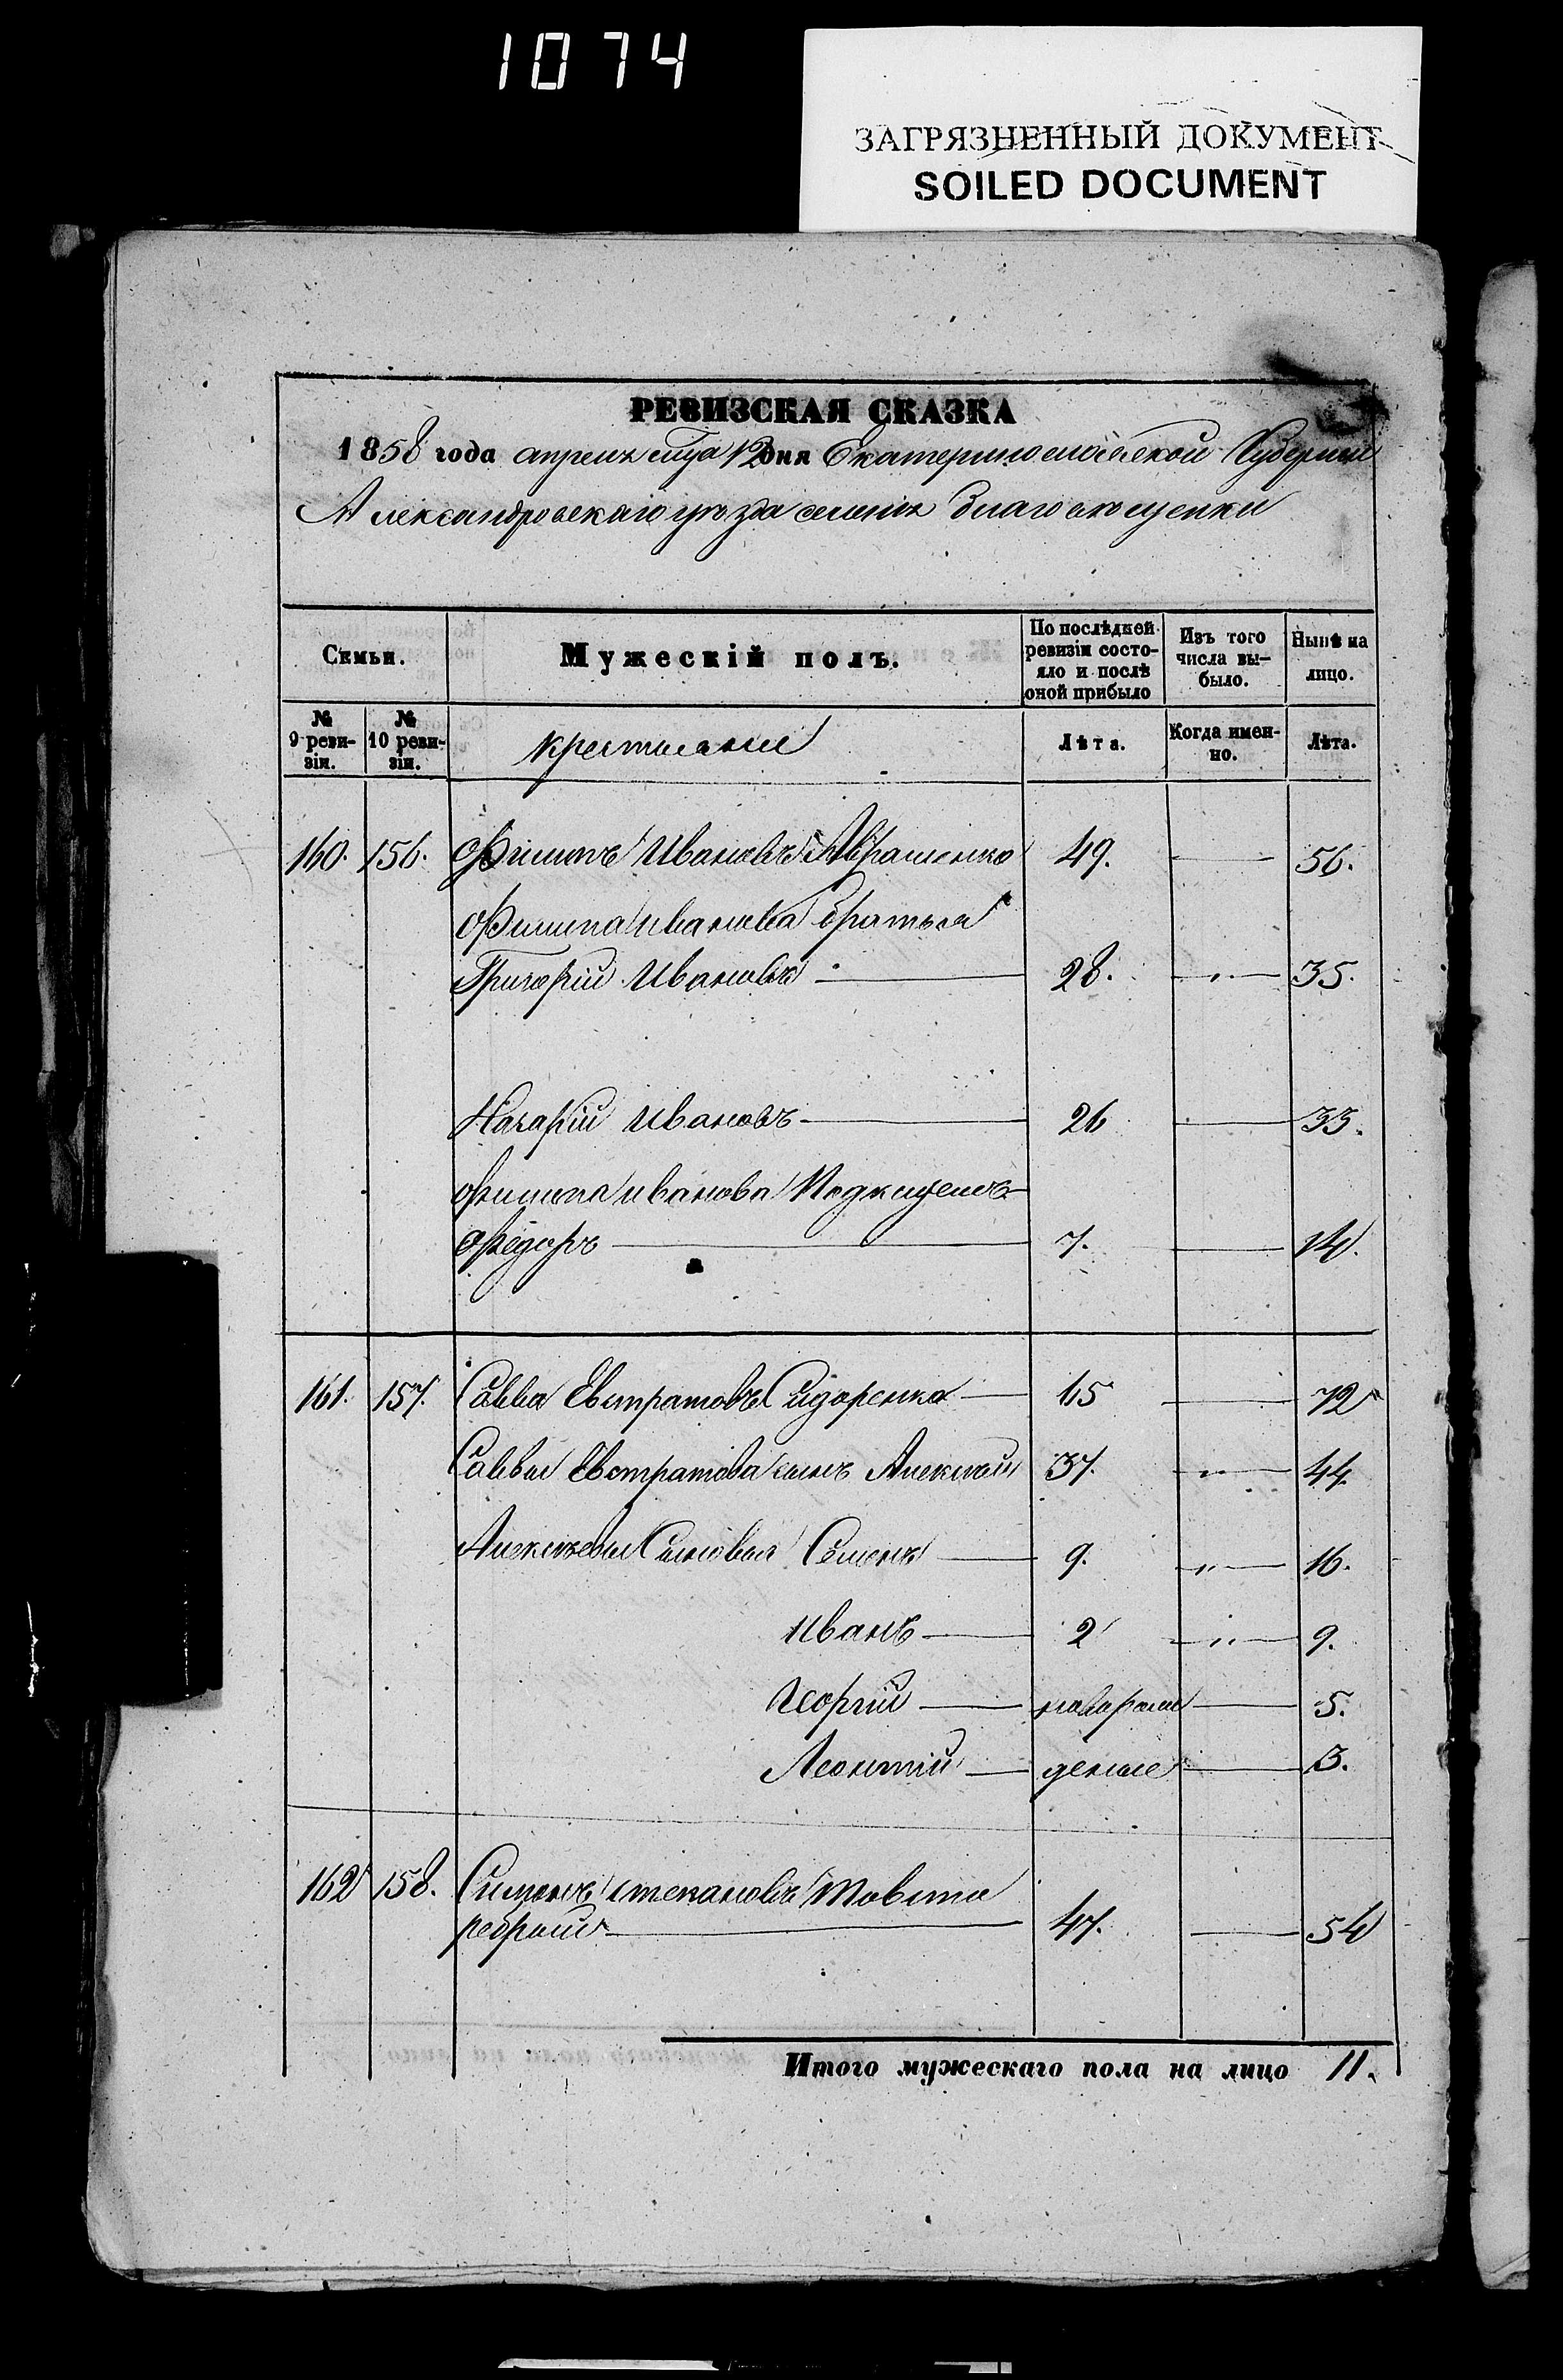 1074
ЗАГРЯЗНЕННЫЙ ДОКУМЕНТ
SOILED DOCUMENT
РЕВИЗСКАЯ СКАЗКА
1858 года апреля мця 12 дня Екатеринославской Губернии
Александровскаго уѣзда селения
Семьи.
Мужескій полъ.
По послѣдней ревизіи состояло и послѣ оной прибыло
Изъ того числа выбыло.
Нынѣ на лицо.
№ 9 ревизіи.
№ 10 ревизіи.
Крестьяне
Лѣта.
Когда именно.
Лѣта.
160. 156. Филипъ Ивановъ Авраменко 49. 56.
Филипа Иванова братья
Григорій Ивановъ 28. " 35.
Назарій Ивановъ 26 33.
Филипа Иванова Подкидешъ
Федоръ 7. 14.
161. 157. Савва Евстратовъ Сидоренко 65 72
Саввы Евстратова сынъ Алексѣй 37. " 44.
Алексѣевы Сыновья Семенъ 9. " 16.
Иванъ 2 " 9.
Георгій новорож 5.
Леонтій деные 3.
162 158. Степановъ Товсто
ребрый 47. 54
Итого мужескаго пола на лицо 11.